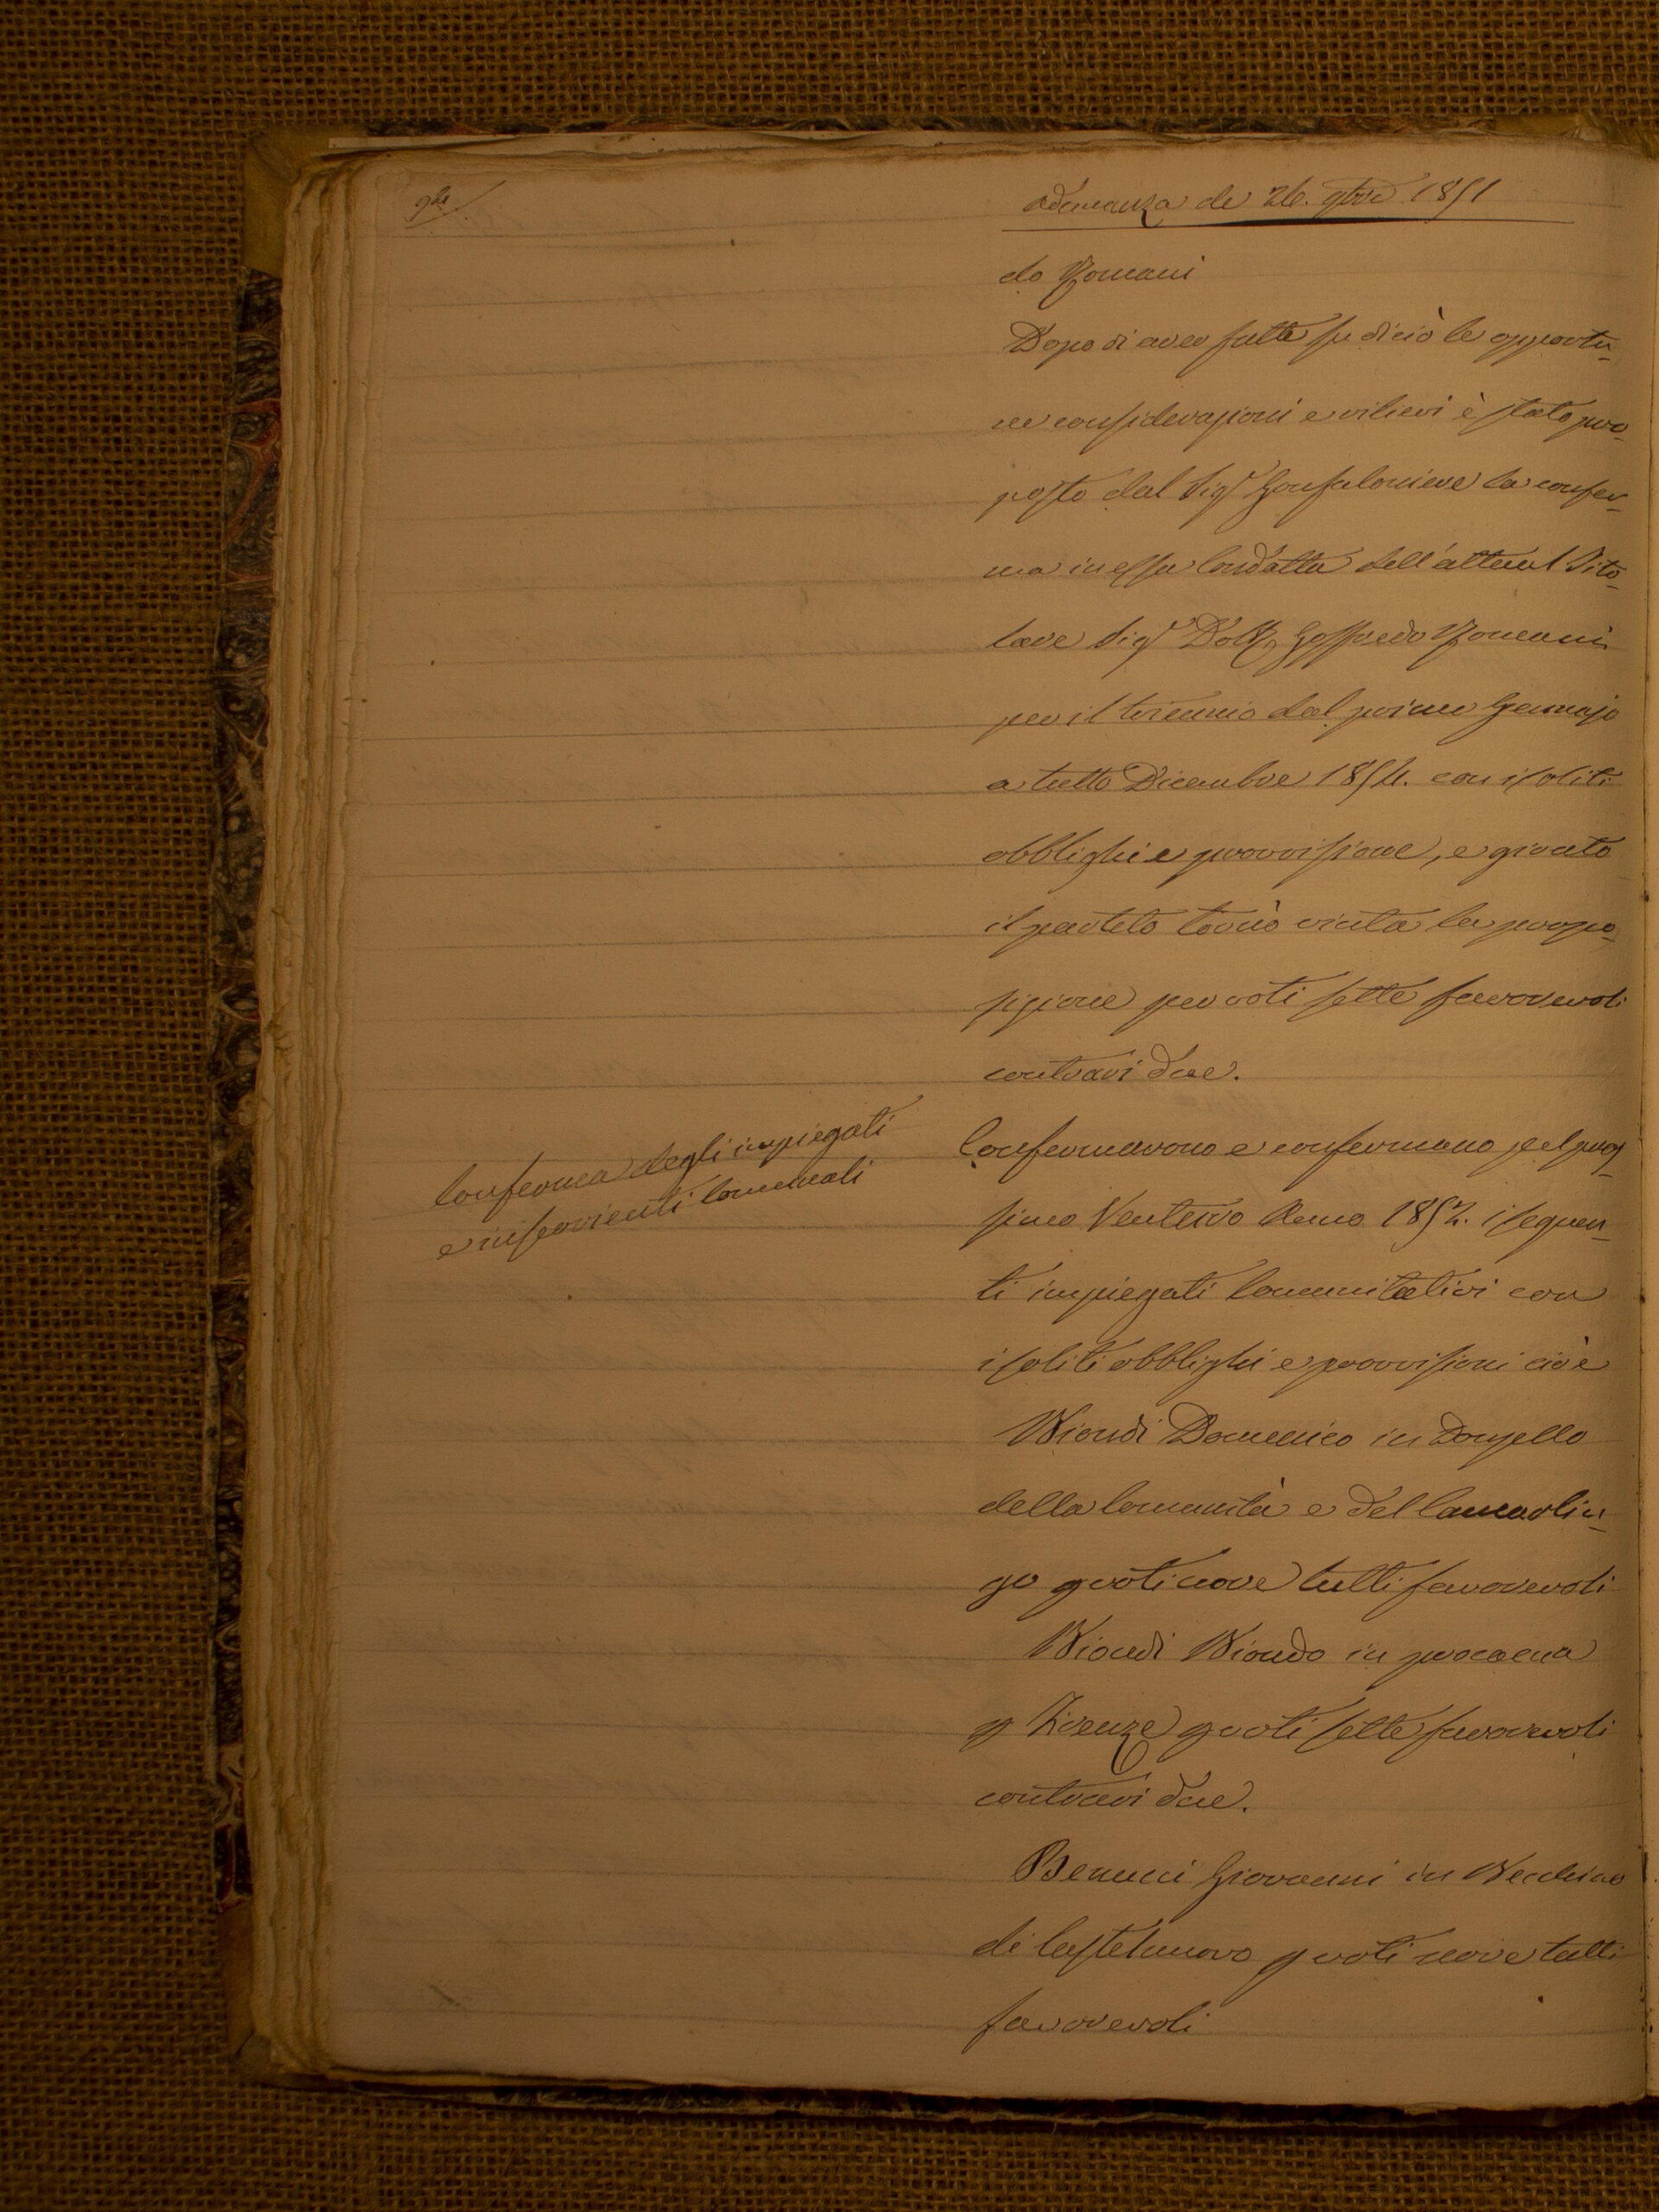 Adunanza de 26. 9bre 1851
do Romani
Dopo di aver fatte su di ciò le opportu-
ne considerazioni e rilievi è stato pro-
posto dal Sigr Gonfaloniere la confer-
ma in essa Condotta dell'attual Tito-
lare Sigr Dott. Goffredo Romani
per il triennio dal primo Gennajo
a tutto Dicembre 1854. con i soliti
obblighi e provvisione, e girato
il partito tornò vinta la propo-
sizione per voti sette favorevoli
contrari due.
Conferma degli impiegati
e inservienti Comunali
Confermarono e confermano pel pros-
simo Venturo Anno 1852. i seguen-
ti impiegati Comunitativi con
i soliti obblighi e provvisioni cioè
Biondi Domenico in Donzello
della Comunità e del Camarlin-
go p voti nove tutti favorevoli
Biondi Biondo in procaccia
p Firenze p voti sette favorevoli
contrari due.
Benucci Giovanni in Becchino
di Castelnuovo p voti nove tutti
favorevoli